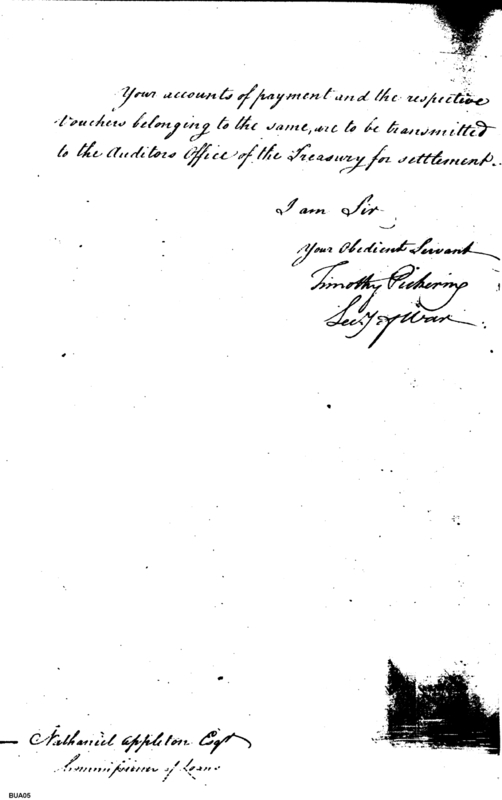 Your accounts of payment and the respective
Vouchers belonging to the same, are to be transmitted
to the Auditors Office of the Treasury for settlement.
I am Sir
Your Obedient Servant
Timothy Pickering
Secy of War
Nathaniel Appleton Esqr
Commissioner of Loans
BUA05